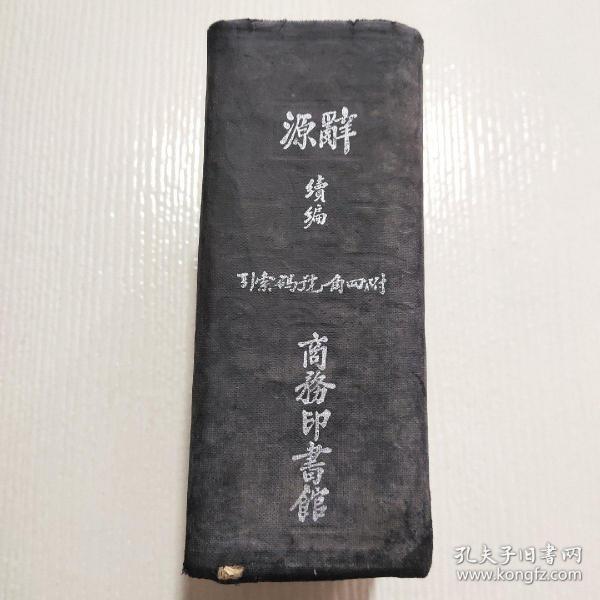 辭源
續編
附四角號碼索引
商務印書館
孔夫子旧书网
www.kongfz.com